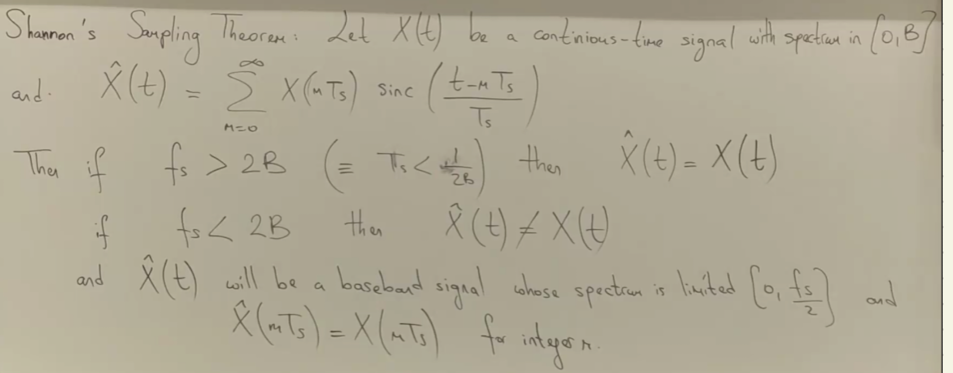 Shannon's Sampling Theorem: Let X(t) be a continious-time signal with spectrum in [0,B]
and. X̂(t) = ∑_{n=0}^{∞} X(nTs) sinc((t-nTs)/Ts)
Then if fs > 2B (≡ Ts < 1/2B) then X̂(t) = X(t)
if fs < 2B then X̂(t) ≠ X(t)
and X̂(t) will be a baseband signal whose spectrum is limited [0, fs/2] and
X̂(nTs) = X(nTs) for integer n.